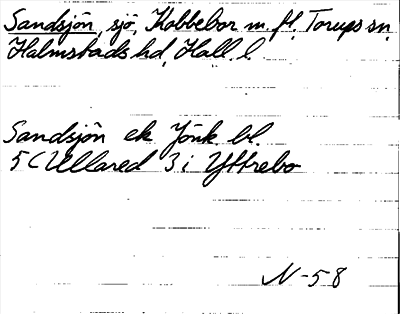 Sandsjön, sjö, Kobbebor m. fl. Torups sn.
Halmstads hd, Hall. l.
Sandsjön ek Jönk. bl.
5 C Ullared 3 i Yttrebo
N-58